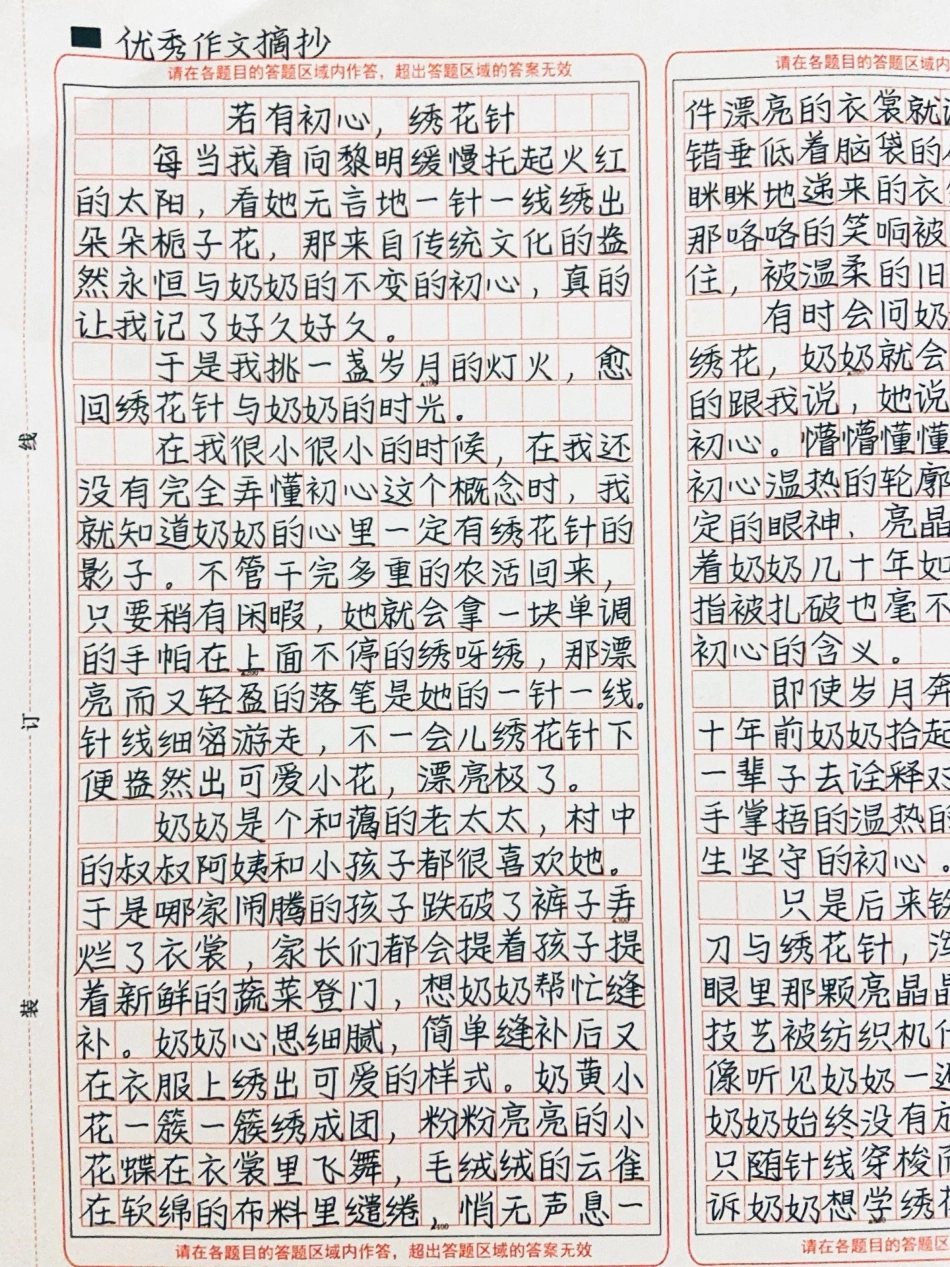 优秀作文摘抄
请在各题目的答题区域内作答，超出答题区域的答案无效
若有初心，绣花针
每当我看向黎明缓慢托起火红
的太阳，看她无言地一针一线绣出
朵朵栀子花，那来自传统文化的盎
然永恒与奶奶的不变的初心，真的
让我记了好久好久。
于是我挑一盏岁月的灯火，愈
回绣花针与奶奶的时光。
在我很小很小的时候，在我还
没有完全弄懂初心这个概念时，我
就知道奶奶的心里一定有绣花针的
影子。不管干完多重的农活回来，
只要稍有闲暇，她就会拿一块单调
的手帕在上面不停的绣呀绣，那漂
亮而又轻盈的落笔是她的一针一线。
针线细密游走，不一会儿绣花针下
便盎然出可爱小花，漂亮极了。
奶奶是个和蔼的老太太，村中
的叔叔阿姨和小孩子都很喜欢她。
于是哪家闹腾的孩子跌破了裤子弄
烂了衣裳，家长们都会提着孩子提
着新鲜的蔬菜登门，想奶奶帮忙缝
补。奶奶心思细腻，简单缝补后又
在衣服上绣出可爱的样式。奶黄小
花一簇一簇绣成团，粉粉亮亮的小
花蝶在衣裳里飞舞，毛绒绒的云雀
在软绵的布料里缱绻，悄无声息一
请在各题目的答题区域内作答，超出答题区域的答案无效
请在各题目的答题区域内
件漂亮的衣裳就
错垂低着脑袋的
眯眯地递来的衣
那咯咯的笑响被
住，被温柔的旧
有时会问奶
绣花，奶奶就会
的跟我说，她说
初心。懵懵懂懂
初心温热的轮廓
定的眼神、亮晶
着奶奶几十年如
指被扎破也毫不
初心的含义。
即使岁月奔
十年前奶奶拾起
一辈子去诠释对
手掌捂的温热的
生坚守的初心。
只是后来铁
刀与绣花针，浑
眼里那颗亮晶晶
技艺被纺织机
像听见奶奶一
奶奶始终没有
只随针线穿梭而
诉奶奶想学绣花
请在各题目的答题区
线
订
装